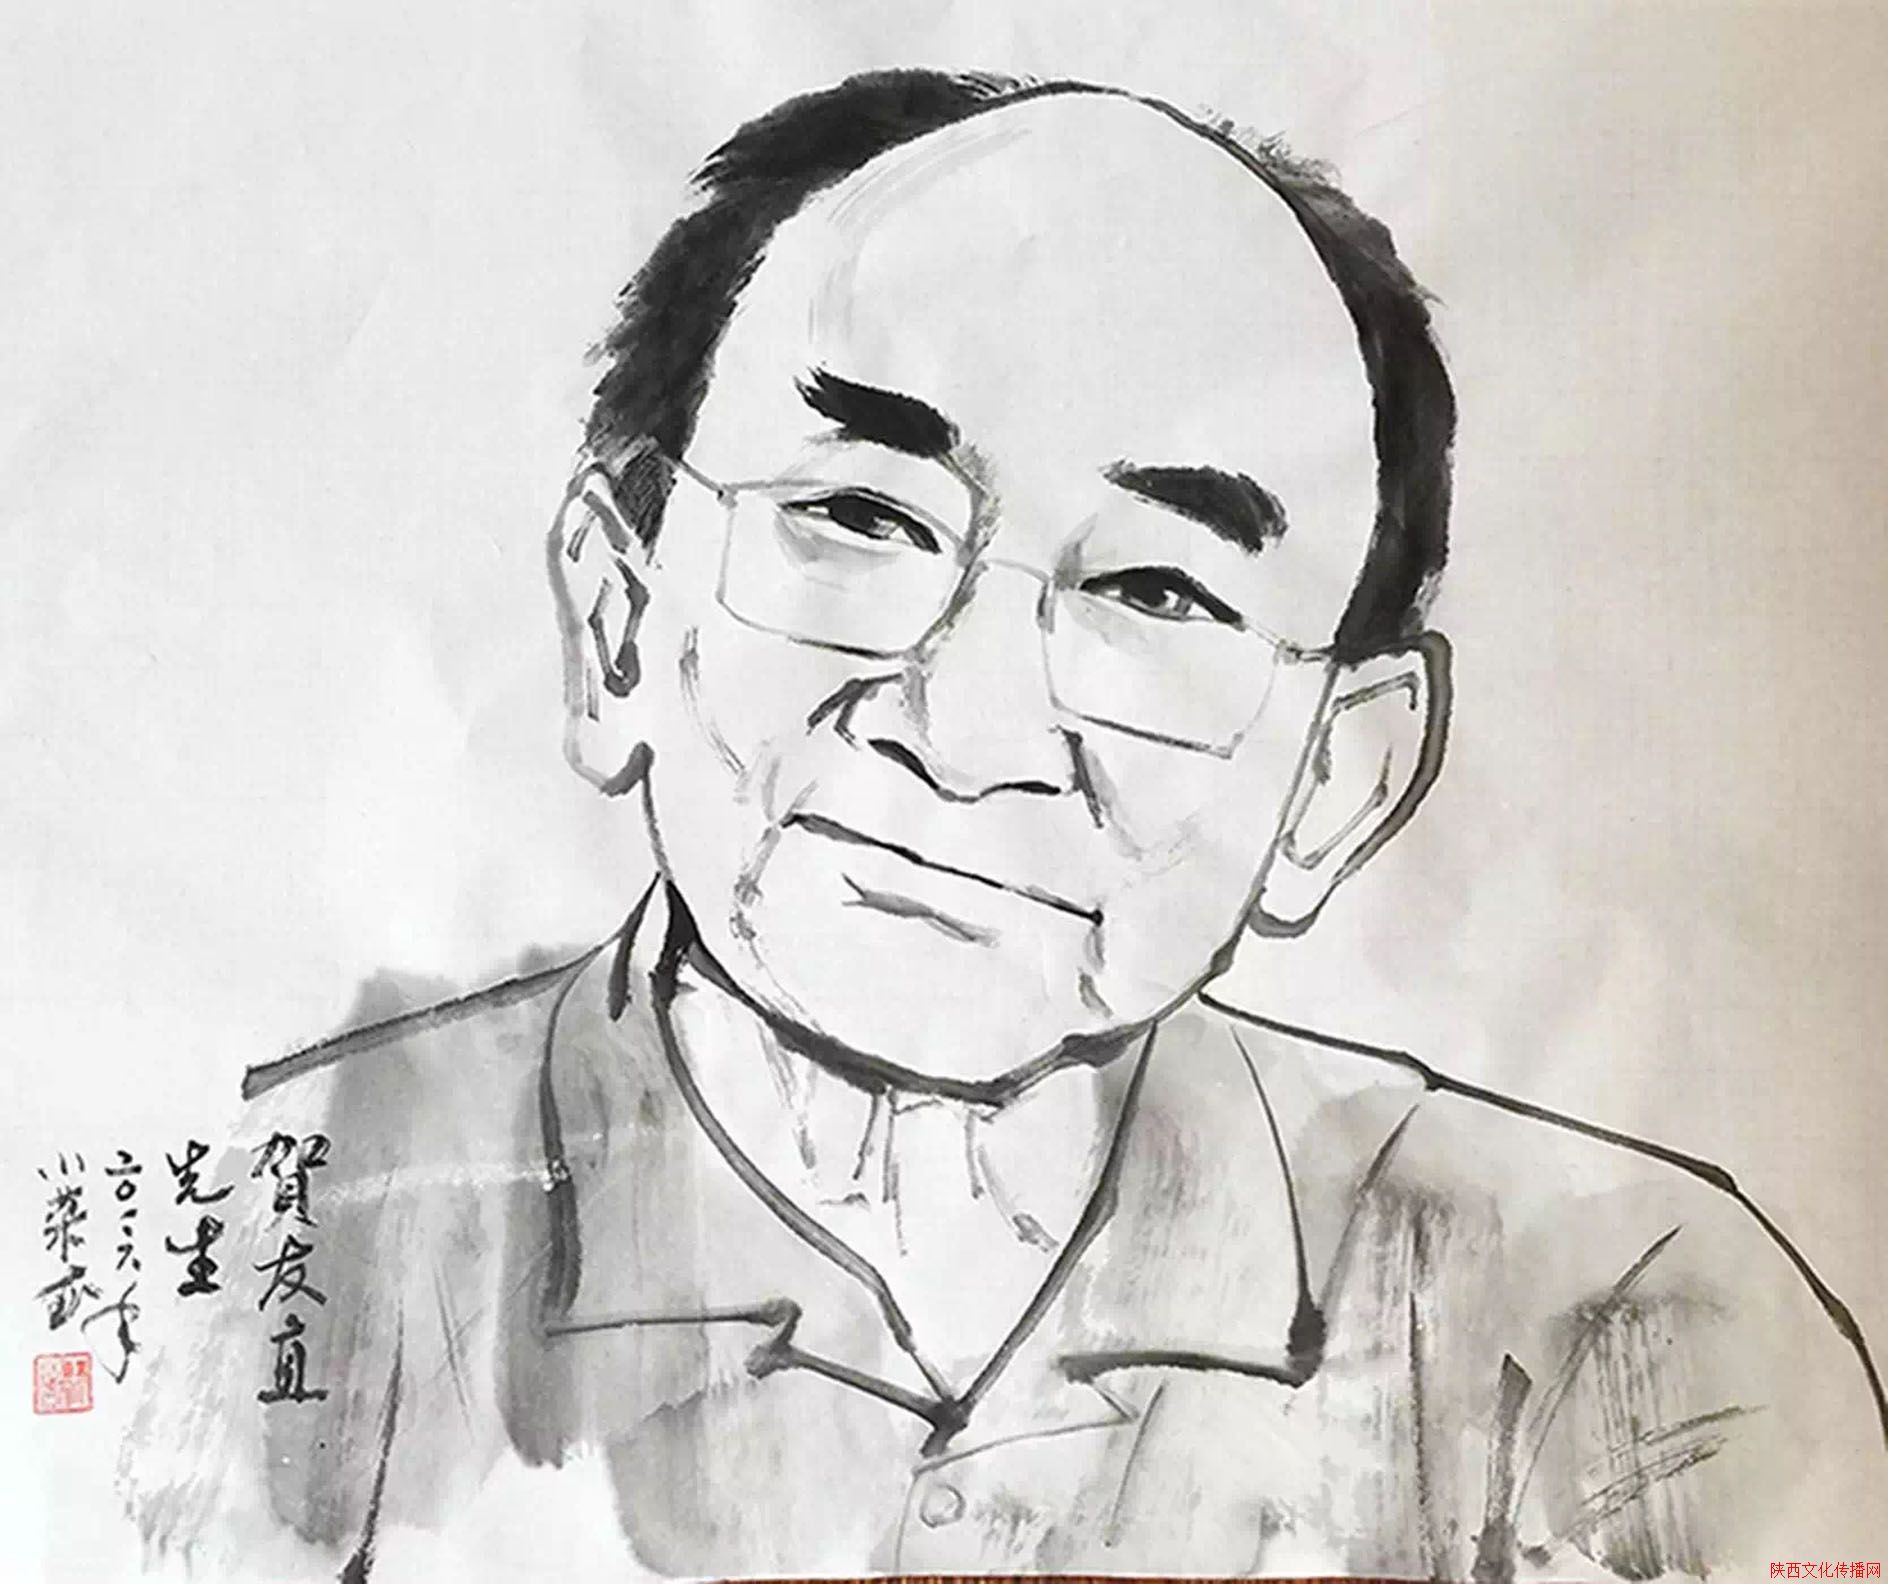 賀友直
先生
二〇一六年
陕西文化传播网